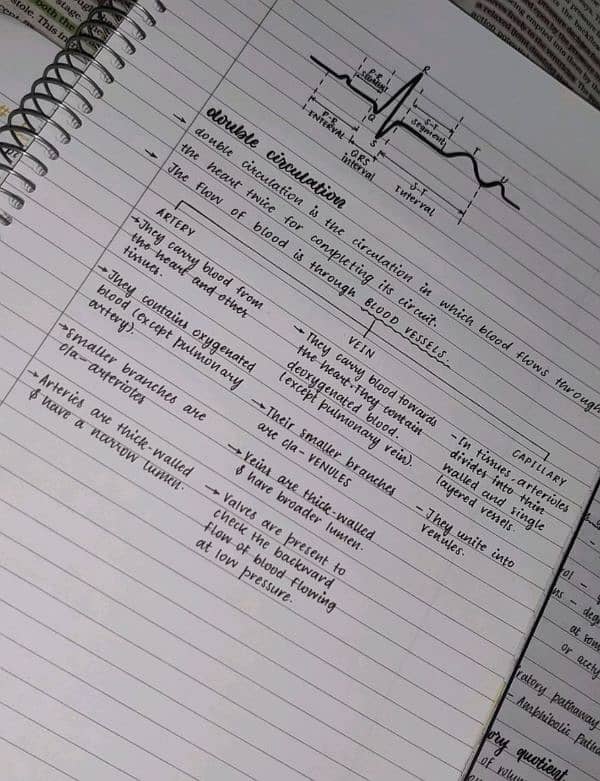 R
P-R
SEGMENT
S-T
segment
T
U
Q
S
P-R
INTERVAL
QRS
interval
S-T
Interval
double circulation
→ double circulation is the circulation in which blood flows through
the heart twice for completing its circuit.
→ The flow of blood is through BLOOD VESSELS.
ARTERY
→They carry blood from
the heart and other
tissues.
→They contains oxygenated
blood (except pulmonary
artery).
→smaller branches are
c/a- arterioles
→Arteries are thick-walled
& have a narrow lumen.
VEIN
→ They carry blood towards
the heart. They contain
deoxygenated blood.
(except pulmonary vein).
→Their smaller branches
are c/a- VENULES
→Veins are thick-walled
& have broader lumen.
→ Valves are present to
check the backward
flow of blood flowing
at low pressure.
CAPILLARY
-In tissues, arterioles
divides into thin
walled and single
layered vessels.
- They unite into
venules.
at
or
pathway
- Amphibolic
quotient
of